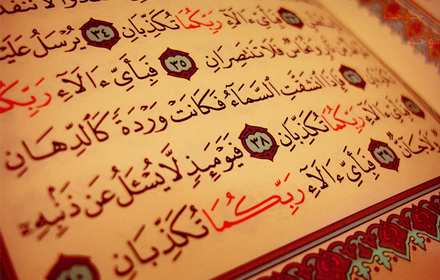 لَا تَنفُذُ
فَبِأَىِّ ءَالَآءِ رَبِّكُمَا تُكَذِّبَانِ ٣٤ يُرْسَلُ عَلَيْ
وَنُحَاسٌ فَلَا تَنتَصِرَانِ ٣٥ فَبِأَىِّ ءَالَآءِ رَبِّكُ
فَإِذَا ٱنشَقَّتِ ٱلسَّمَآءُ فَكَانَتْ وَرْدَةً كَٱلدِّهَانِ
فَبِأَىِّ ءَالَآءِ رَبِّكُمَا تُكَذِّبَانِ ٣٨ فَيَوْمَئِذٍ لَّا يُسْـَٔلُ عَن ذَنۢبِهِۦٓ
وَلَا جَآنٌّ ٣٩ فَبِأَىِّ ءَالَآءِ رَبِّكُمَا تُكَذِّبَانِ